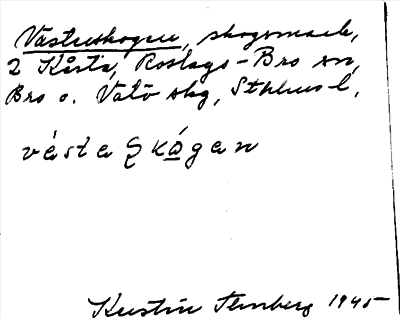 Västerskogen, skogsmark,
2 Kårsta, Roslags-Bro sn,
Bro o. Vätö skg, Sthlms l.
västaskógan
Kerstin Stenberg 1945